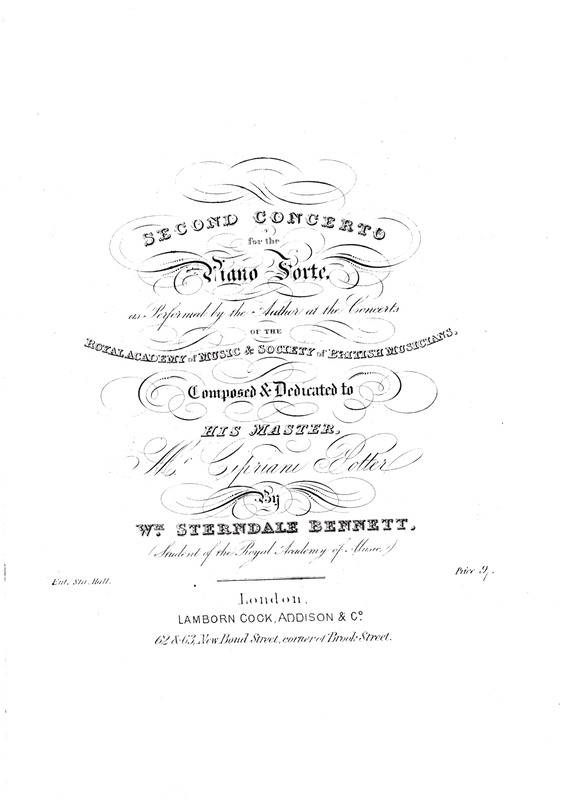 SECOND CONCERTO
for the
Piano Forte.
as Performed by the Author at the Concerts
OF THE
ROYAL ACADEMY of MUSIC & SOCIETY of BRITISH MUSICIANS,
Composed & Dedicated to
HIS MASTER,
Mr. Cipriani Potter
By
Wm. STERNDALE BENNETT,
(Student of the Royal Academy of Music,)
Ent. Sta. Hall.
Price 9/.
London,
LAMBORN COCK, ADDISON & Co.
62 & 63, New Bond Street, corner of Brook Street.